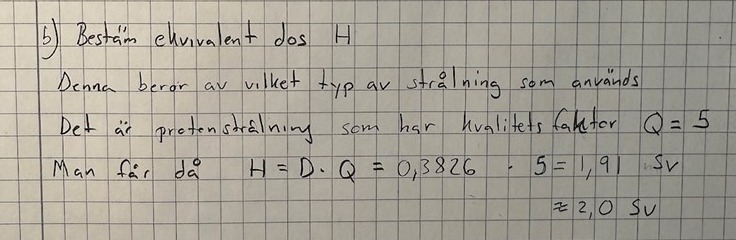 b) Bestäm ekvivalent dos H
Denna beror av vilket typ av strålning som används
Det är protonstrålning som har kvalitetsfaktor Q = 5
Man får då H = D · Q = 0,3826 · 5 = 1,91 Sv
≈ 2,0 Sv